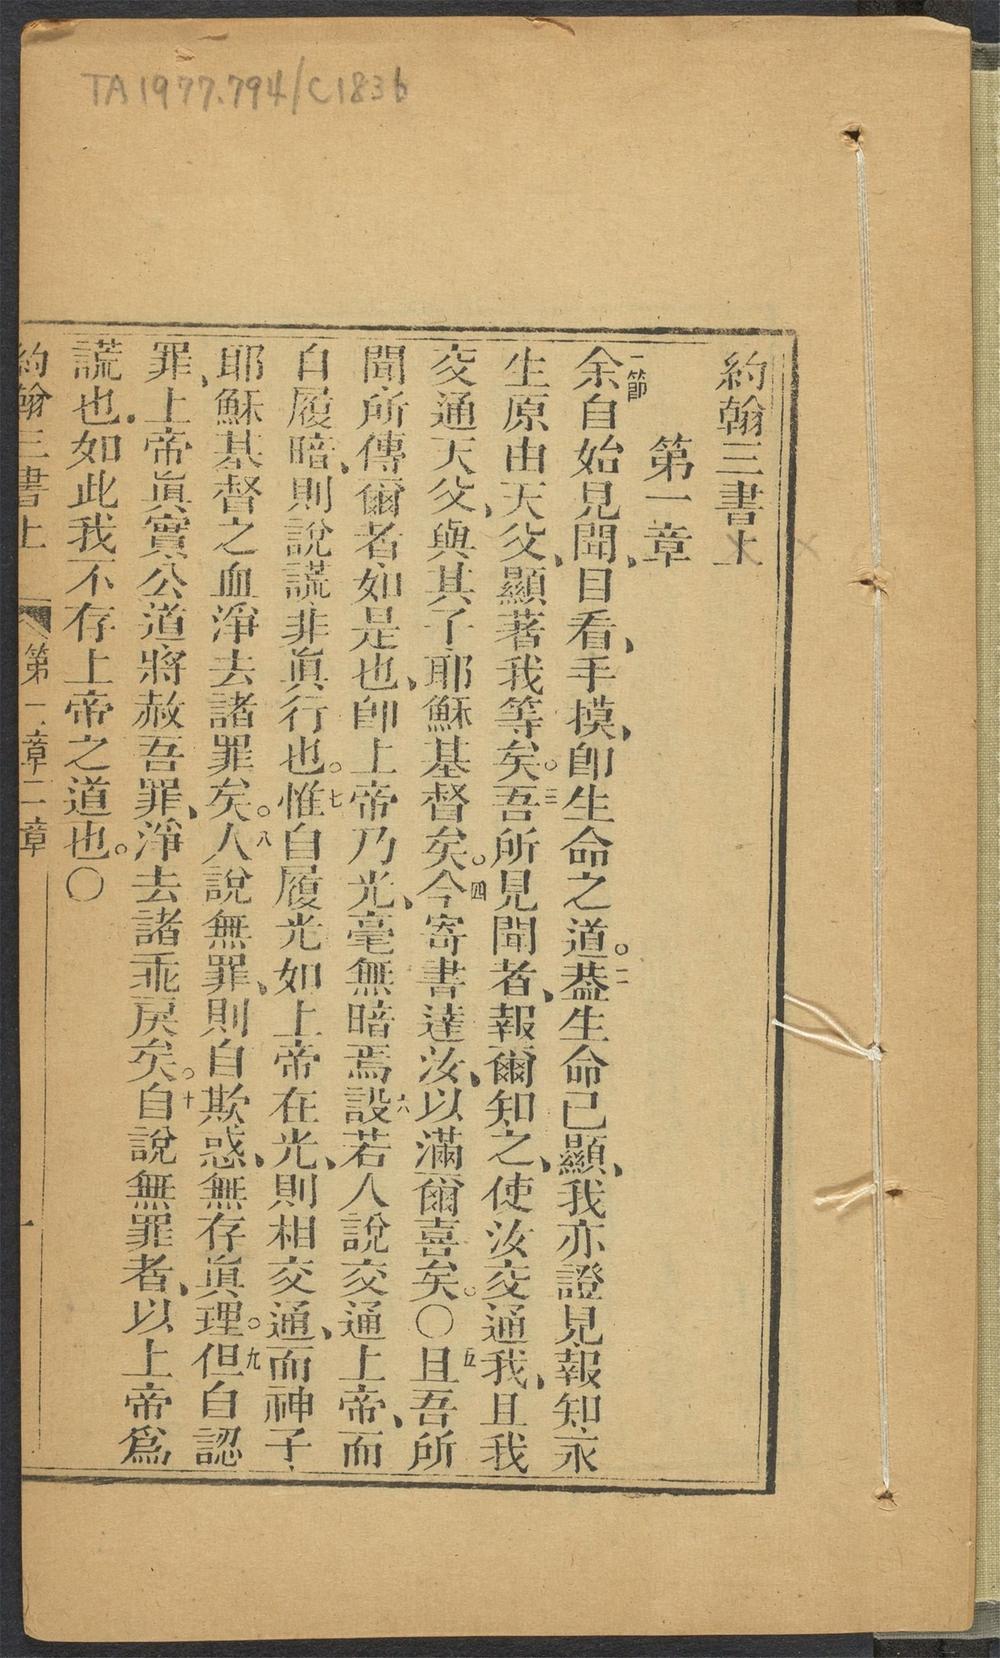 TA 1977.794/C1836
約翰三書上
第一章
一節余自始見聞、目看、手摸、卽生命之道。二蓋生命已顯、我亦證見報知永
生原由天父、顯著我等矣。三吾所見聞者、報爾知之、使汝交通我、且我
交通天父、與其子耶穌基督矣。四今寄書達汝、以滿爾喜矣。〇五且吾所
聞所傳爾者如是也、卽上帝乃光、毫無暗焉六設若人說交通上帝、而
自履暗、則說謊非眞行也。七惟自履光如上帝在光、則相交通、而神子
耶穌基督之血淨去諸罪矣。八人說無罪、則自欺惑、無存眞理。九但自認
罪、上帝眞實公道將赦吾罪、淨去諸乖戾矣。十自說無罪者、以上帝爲
謊也、如此我不存上帝之道也。〇
約翰三書上 第一章二章 一